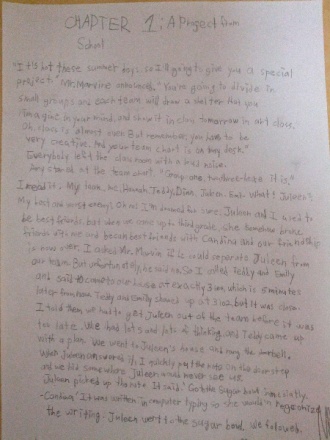 CHAPTER 1: A Project from
School
"It's hot these summer days, so I'll going to give you a special
project." Mr. Marvine announced. "You're going to divide in
small groups and each team will draw a that you
imagine in your mind, and show it in class tomorrow in art class.
Oh, class is almost over. But remember, you have to be
very creative. And your team chart is on my desk."
Everybody left the classroom with a loud noise.
I looked at the team chart. "Group one, two, three- here it is."
I read it. My team is: Hannah, Teddy, Juleen, Emily. What? Juleen's
My best and worst enemy! Oh no! I'm doomed for sure. Juleen and I used to
be best friends, but when we came up to third grade, she somehow broke
friends with me and became best friends with Candina and our friendship
is now over. I asked Mr. Marvin if he could separate Juleen from
our team. But unfortunately, he said no. So I called Teddy and Emily
and said to come to our house at exactly 3:00, which is 5 minutes
later from now. Teddy and Emily showed up at 3:02, but it was close.
I told them we had to get Juleen out of the team before it was
too late. We had lots and lots of thinking, and Teddy came up
with a plan. We went to Juleen's house and rang the doorbell.
When Juleen answered it, I quickly put the note on the doorstep
and we hid somewhere Juleen would never see us.
Juleen picked up the note. It said: "Go to the Sugar bowl immediately.
-Candina" It was written in computer typing so she wouldn't recognize
the writing. Juleen went to the sugar bowl. We followed.